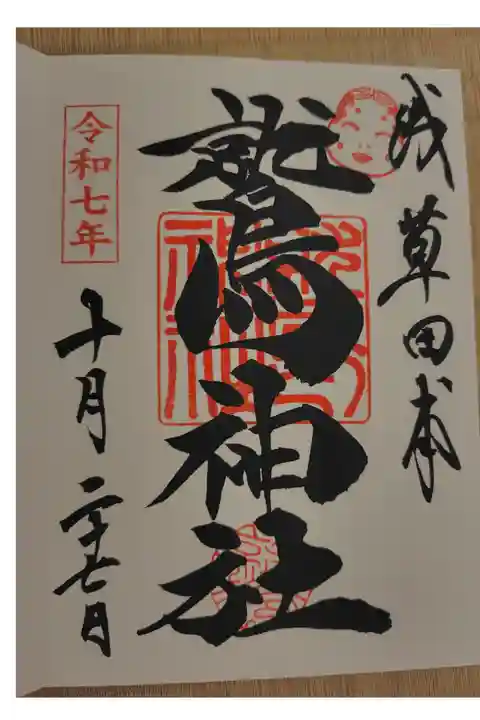 浅草田本
鷲神社
令和七年
十月二十七日